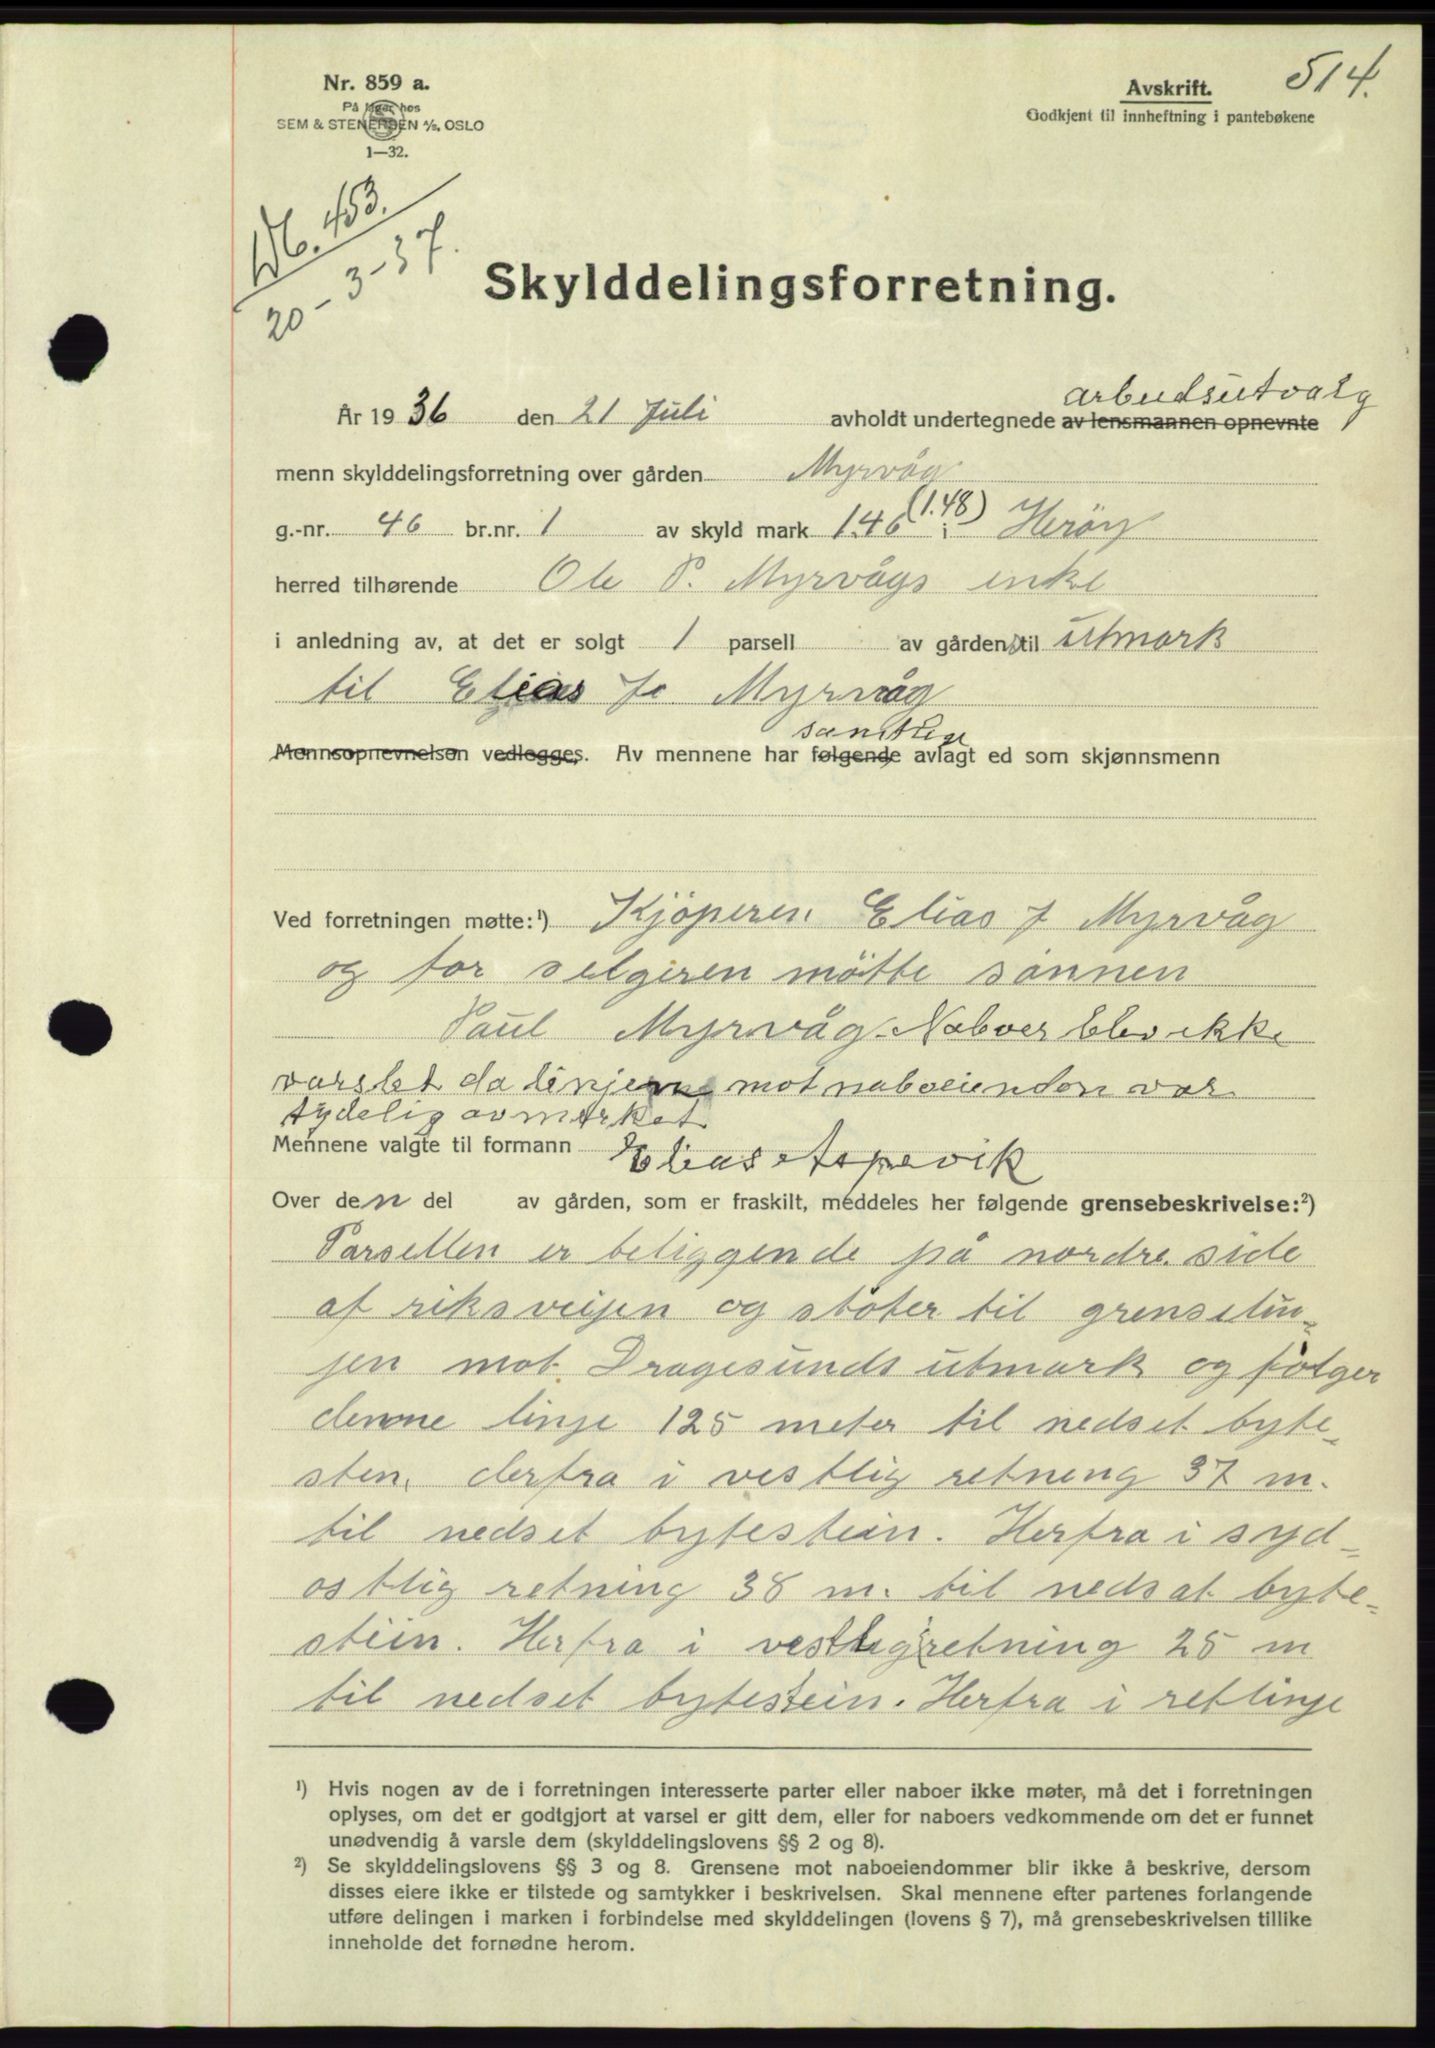 514.
Nr. 859 a.
På lager hos
SEM & STENERSEN A/S, OSLO
1—32.
Avskrift.
Godkjent til innheftning i pantebøkene
453.
20-3-37.
Skylddelingsforretning.
År 1936 den 21 Juli avholdt undertegnede av lensmannen opnevnte arbeidsutvalg
menn skylddelingsforretning over gården Myrvåg
g.-nr. 46 br.nr. 1 av skyld mark 1.46 (1.48) i Herøy
herred tilhørende Ole P. Myrvågs enke
i anledning av, at det er solgt 1 parsell av gårdens til utmark
til Elias J. Myrvåg
Mennsopnevnelsen vedlegges. Av mennene har følgende samtlige avlagt ed som skjønnsmenn
Ved forretningen møtte:¹) Kjöperen Elias J Myrvåg
og for selgeren mötte sønnen
Paul Myrvåg. Naboer blev ikke
varslet da linjerne mot naboeiendom var
tydelig avmerket
Mennene valgte til formann Elias Aspevik
Over den del av gården, som er fraskilt, meddeles her følgende grensebeskrivelse:²)
Parsellen er beliggende på nordre side
af riksveijen og støter til grenselin-
jen mot Dragesunds utmark og følger
denne linje 125 meter til nedset byte-
sten, derfra i vestlig retning 37 m.
til nedset bytestein. Herfra i syd-
ostlig retning 38 m. til nedsat byte-
stein. Herfra i vestlig retning 25 m
til nedset bytestein. Herfra i ret linje
¹) Hvis nogen av de i forretningen interesserte parter eller naboer ikke møter, må det i forretningen
oplyses, om det er godtgjort at varsel er gitt dem, eller for naboers vedkommende om det er funnet
unødvendig å varsle dem (skylddelingslovens §§ 2 og 8).
²) Se skylddelingslovens §§ 3 og 8. Grensene mot naboeiendommer blir ikke å beskrive, dersom
disses eiere ikke er tilstede og samtykker i beskrivelsen. Skal mennene efter partenes forlangende
utføre delingen i marken i forbindelse med skylddelingen (lovens § 7), må grensebeskrivelsen tillike
inneholde det fornødne herom.